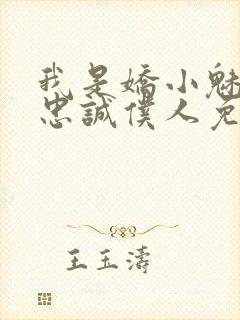 我是嬌小魅
忠誠僕人免
王玉濤